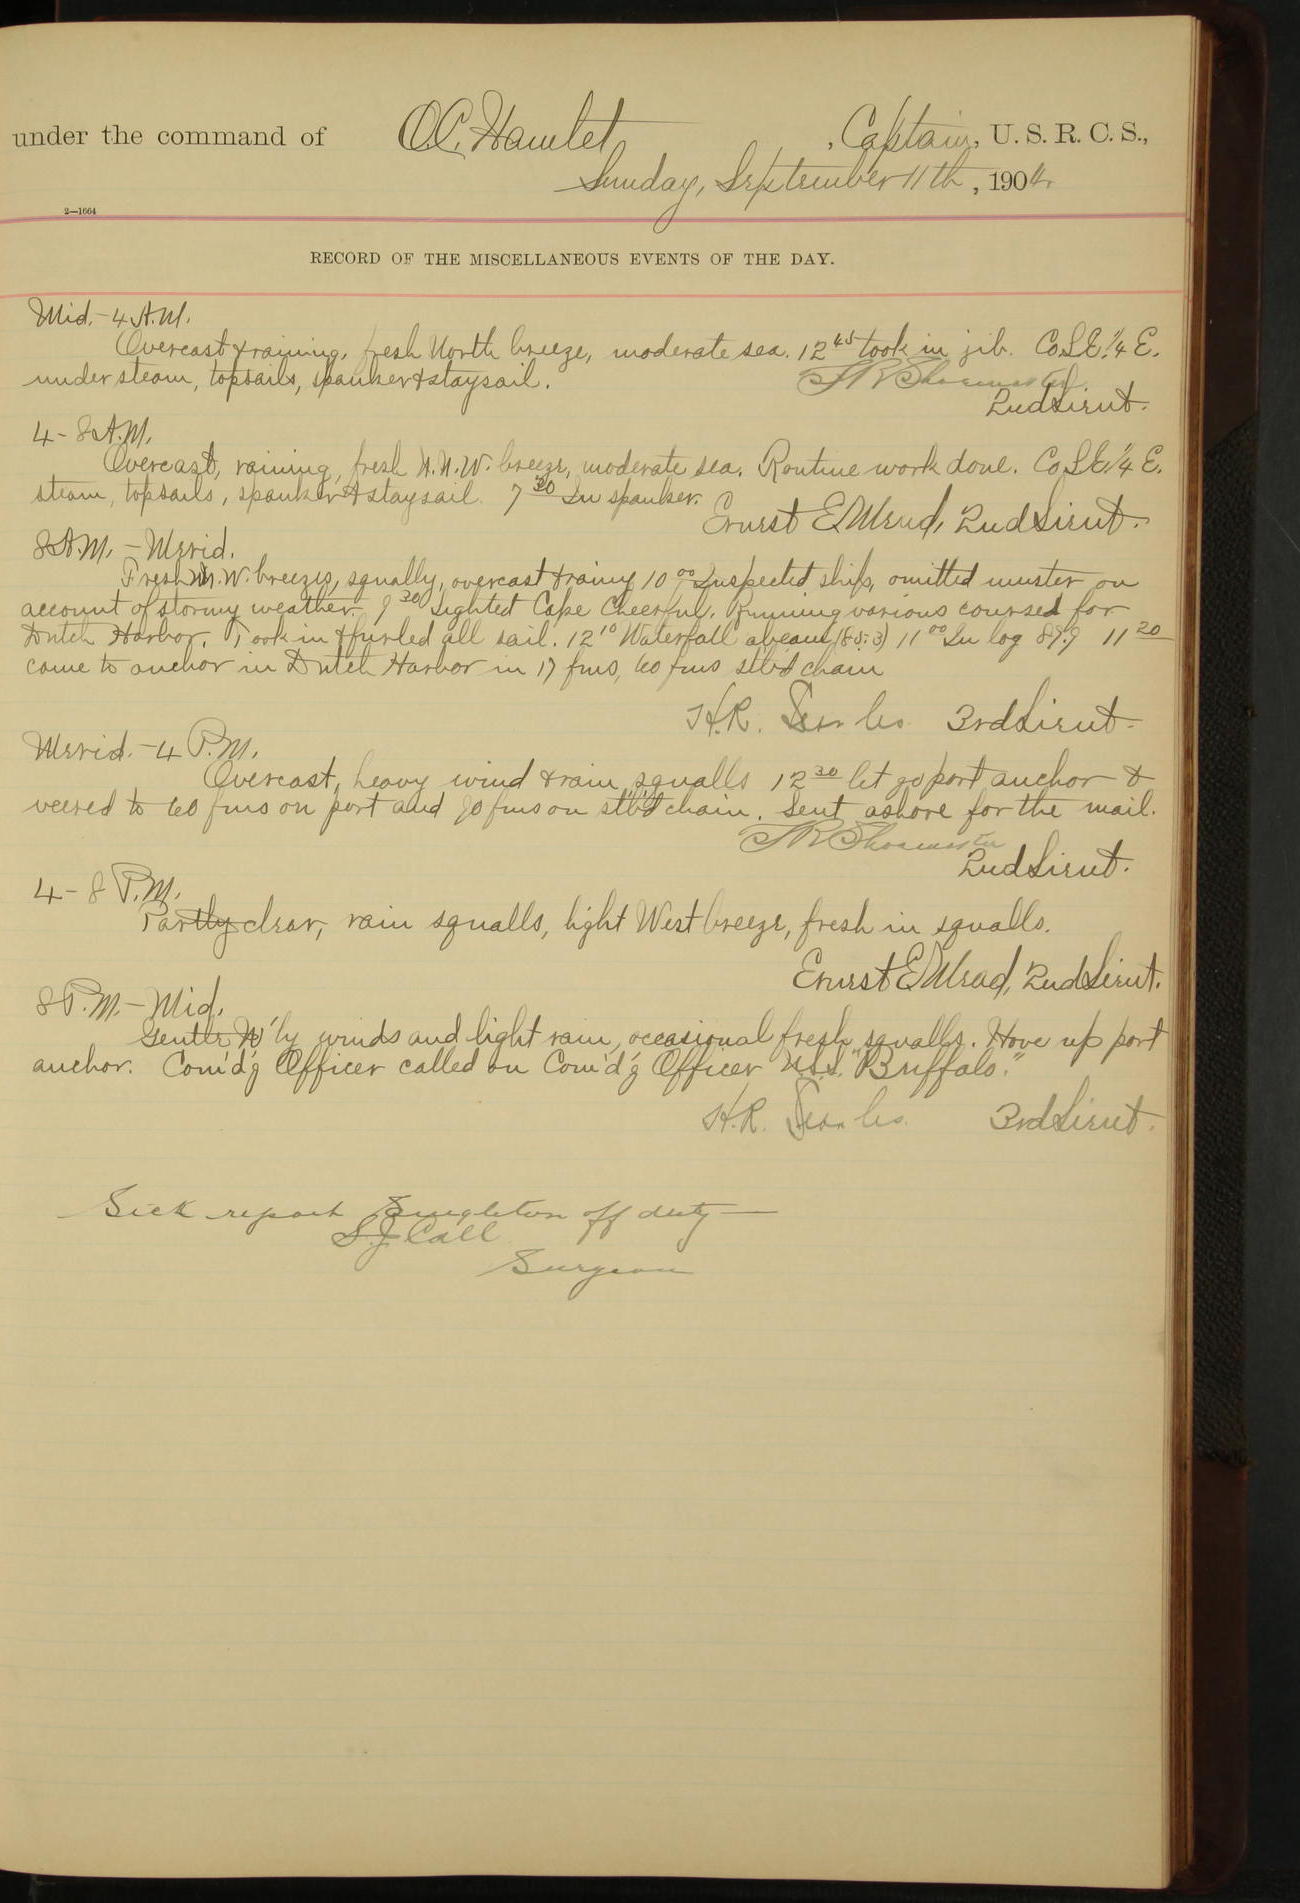 under the command of O.C. Hamlet , Captain, U. S. R. C. S.,
Sunday, September 11th, 1904.
2—1664
RECORD OF THE MISCELLANEOUS EVENTS OF THE DAY.
Mid. - 4 A.M.
Overcast & raining, fresh North breeze, moderate sea. 12 45 took in jib. Co. S.E. 1/4 E.
under steam, topsails, spanker & staysail.
F R Shoemaker
2nd Lieut.
4 - 8 A.M.
Overcast, raining, fresh N.N.W. breeze, moderate sea. Routine work done. Co. S.E. 1/4 E.
steam, topsails, spanker & staysail. 7 30 In spanker.
Ernest E. Mead, 2nd Lieut.
8 A.M. - Merid.
Fresh N.W. breezes, squally, overcast & rainy 10 00 Inspected ship, omitted muster on
account of stormy weather. 9 30 Sighted Cape Cheerful. Running various courses for
Dutch Harbor. Took in & furled all sail. 12 10 Waterfall abeam (85.3) 11 00 In log 89.9 11 20
came to anchor in Dutch Harbor in 17 fms, 60 fms stb'd chain
H.R. Searles 3rd Lieut.
Merid. - 4 P.M.
Overcast, heavy wind & rain squalls 12 30 let go port anchor &
veered to 60 fms on port and 90 fms on stb'd chain. Sent ashore for the mail.
F R Shoemaker
2nd Lieut.
4 - 8 P.M.
Partly clear, rain squalls, light West breeze, fresh in squalls.
Ernest E. Mead, 2nd Lieut.
8 P.M. - Mid.
Gentle W'ly winds and light rain, occasional fresh squalls. Hove up port
anchor. Com'd'g Officer called on Com'd'g Officer U.S.S. "Buffalo".
H.R. Searles 3rd Lieut.
Sick report Singleton off duty
S.J. Call
Surgeon